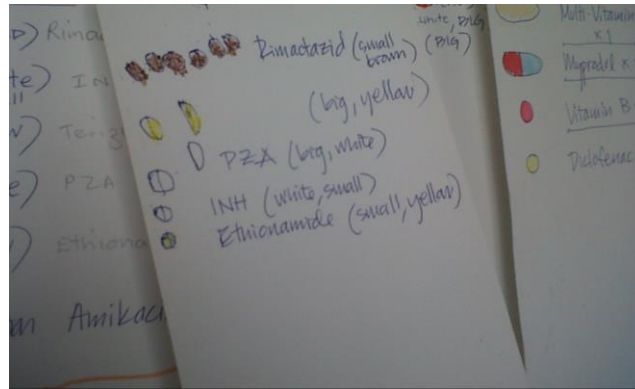 Rima
INH
PZA
Ethiona
Amikaci
white, BIG
Rimactazid (small brown) (BIG)
(big, yellow)
PZA (big, white)
INH (white, small)
Ethionamide (small, yellow)
Multi-Vitamin
x 1
Myprodol x
Vitamin B
Diclofenac